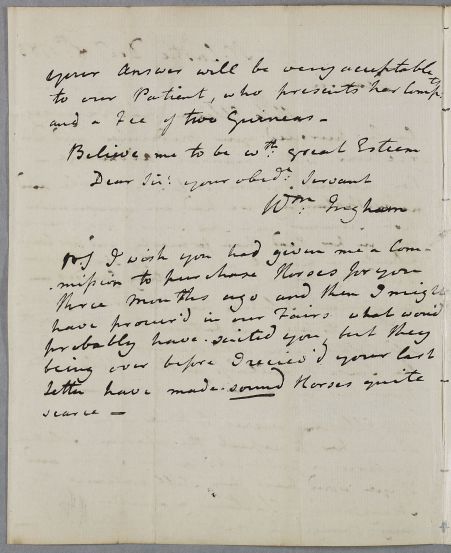 your Answer will be very acceptable
to our Patient, who presents her Compts
and a Fee of two Guineas –
Believe me to be wth great Esteem
Dear Sir: your obedt Servant
Wm Ingham
PS I wish you had given me a Com-
-mission to purchase Horses for you
three Months ago and then I might
have procur'd in our Fairs what wou'd
probably have suited you, but they
being over before I reciev'd your last
Letter have made sound Horses quite
scarce —